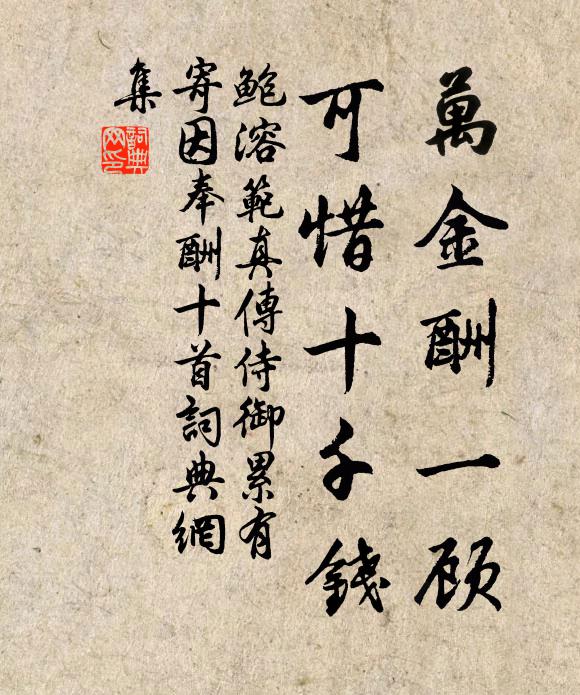 萬金酬一顾
可惜十千錢
鲍溶範真傳侍御累有
寄因奉酬十首詞典網
集
詞典
网印